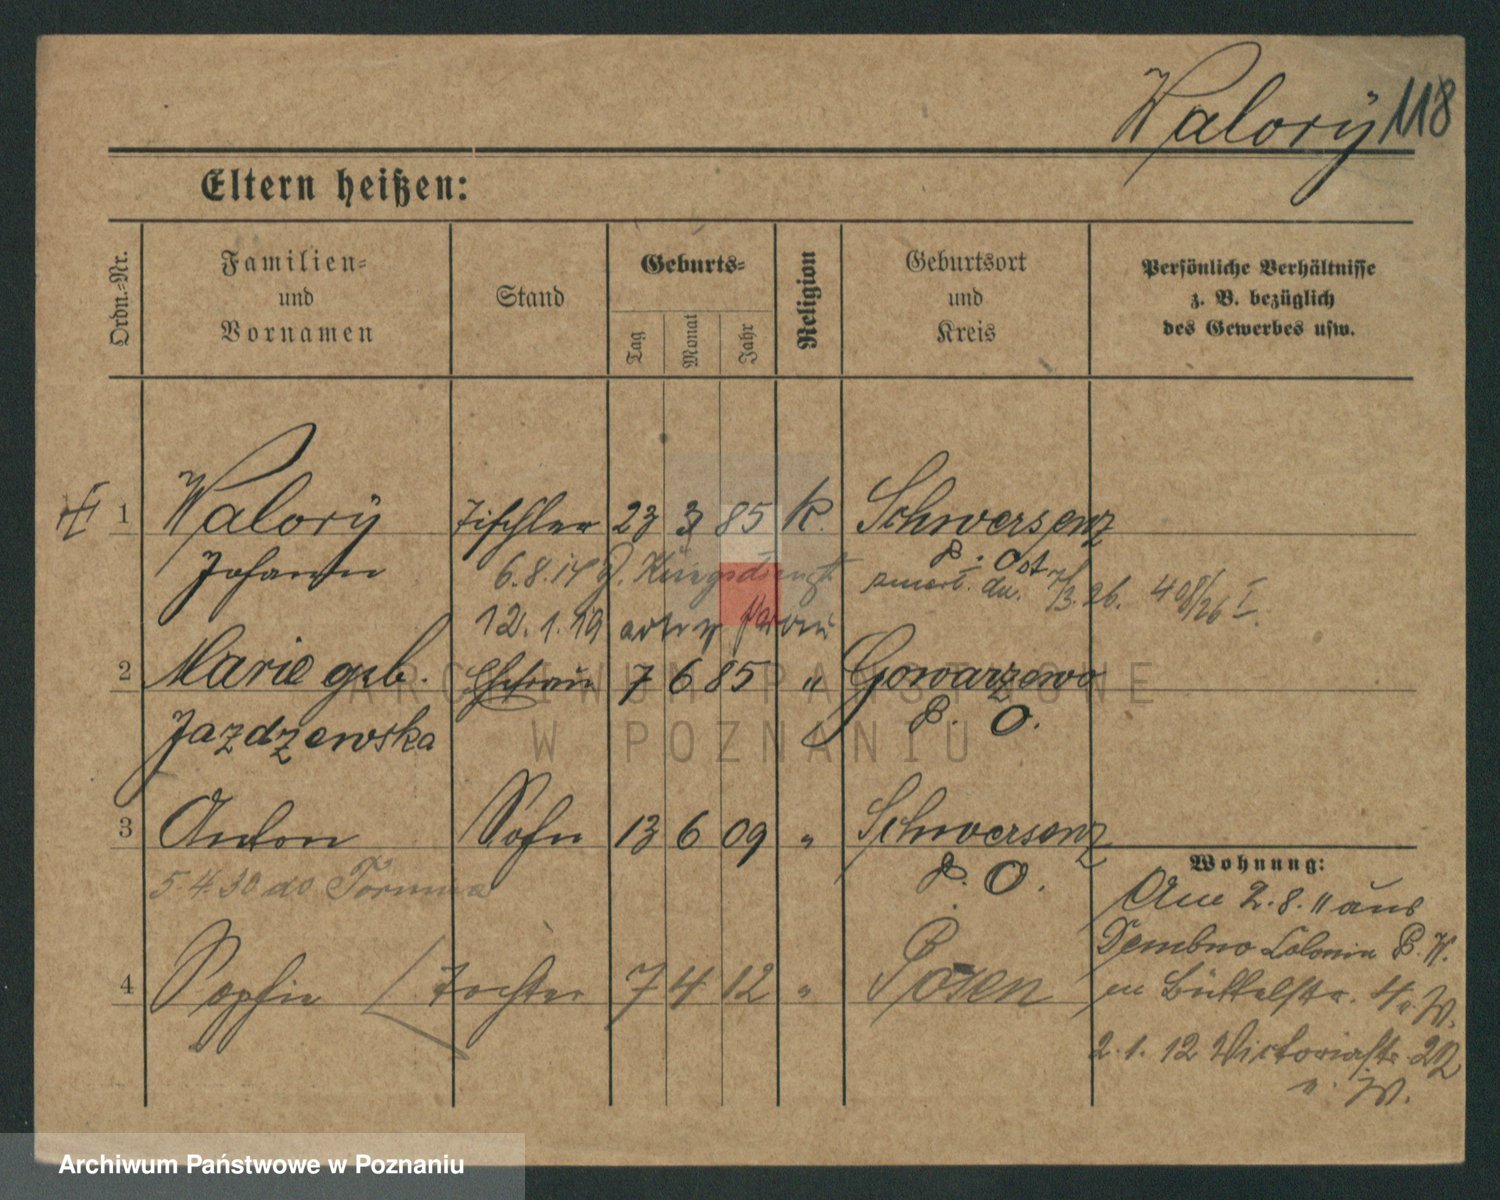 Walorÿ 118
Eltern heißen:
Ordn.-Nr.
Familien-
und
Vornamen
Stand
Geburts-
Tag
Monat
Jahr
Religion
Geburtsort
und
Kreis
Persönliche Verhältnisse
z. B. bezüglich
des Gewerbes usw.
1 Walorÿ Tischler 23 3 85 k. Schwersenz
Johann 6.8.14 z. Kriegsdienst P. Ost
zmarł dn. 7/3.26. 408/26 I.
12.1.19
2 Marie geb. Ehefrau 7 6 85 " Gowarzewo
Jazdzewska P. O.
3 Anton Sohn 13 6 09 " Schwersenz
5.4.30 do Torunia P. O.
4 Sophie Tochter 7 4 12 " Posen
Wohnung:
Am 2.8.11 aus
Dembno Colonie P. W.
Büttelstr.
2.1.12 Victoriastr. 22
W.
ARCHIWUM PAŃSTWOWE
W POZNANIU
Archiwum Państwowe w Poznaniu